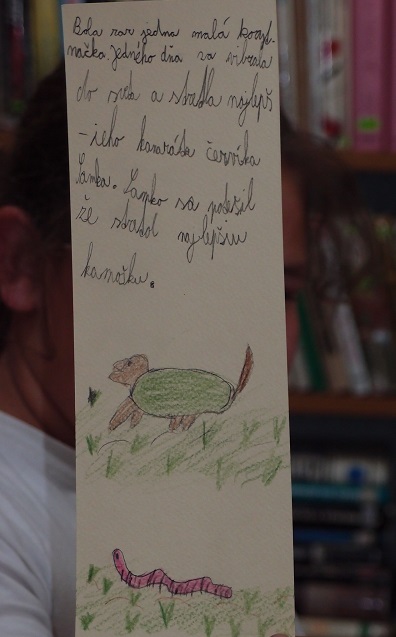 Bola raz jedna malá koryt-
načka. Jedného dňa sa vibrala
do sveta a stretla najlepš
-ieho kamaráta červíka
Samka. Samko sa potešil
že stretol najlepšiu
kamošku.